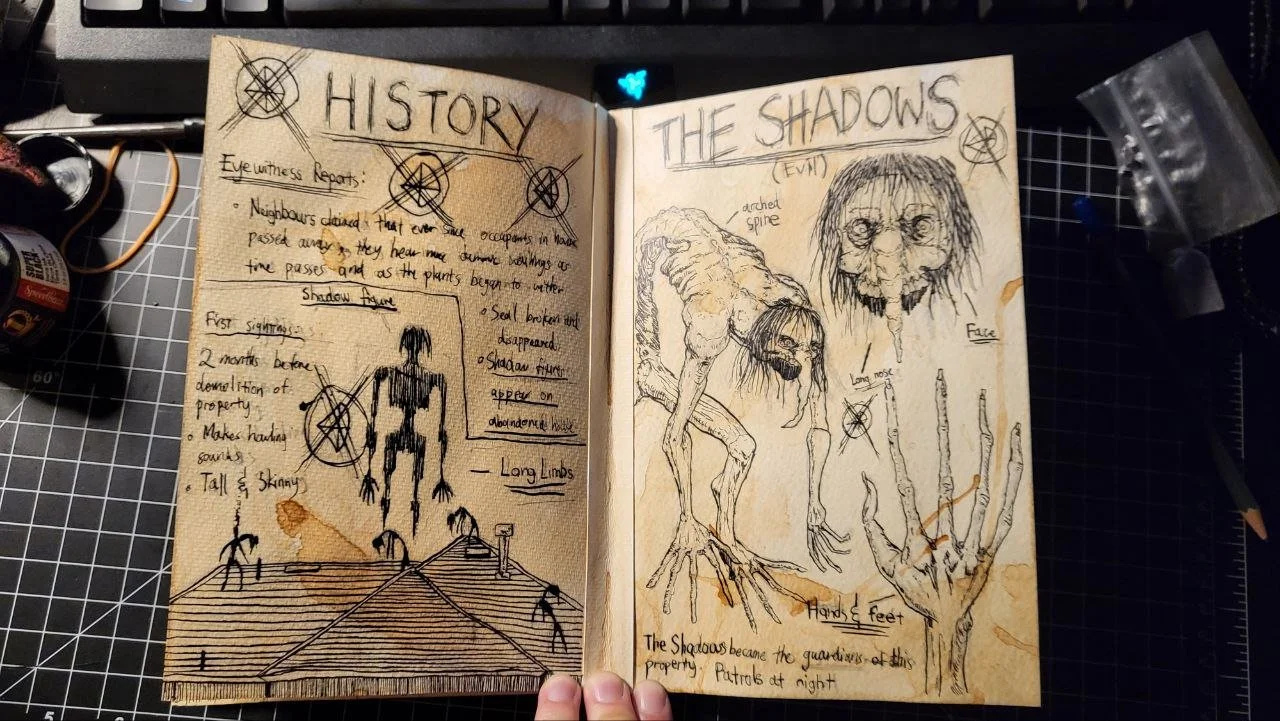 HISTORY
Eyewitness Reports:
Neighbours claimed that ever since occupants in house
passed away, they hear more demonic wailings as
time passes and as the plants began to wither
Shadow figure
First sightings:
2 months before
demolition of
property
Makes howling
sounds
Tall & Skinny
Seal broken and
disappeared.
Shadow figures
appear on
abandoned house
Long Limbs
THE SHADOWS
(EVIl)
arched
spine
Face
Long nose
Hands & feet
The Shadows became the guardians of this
property. Patrols at night
60°
5